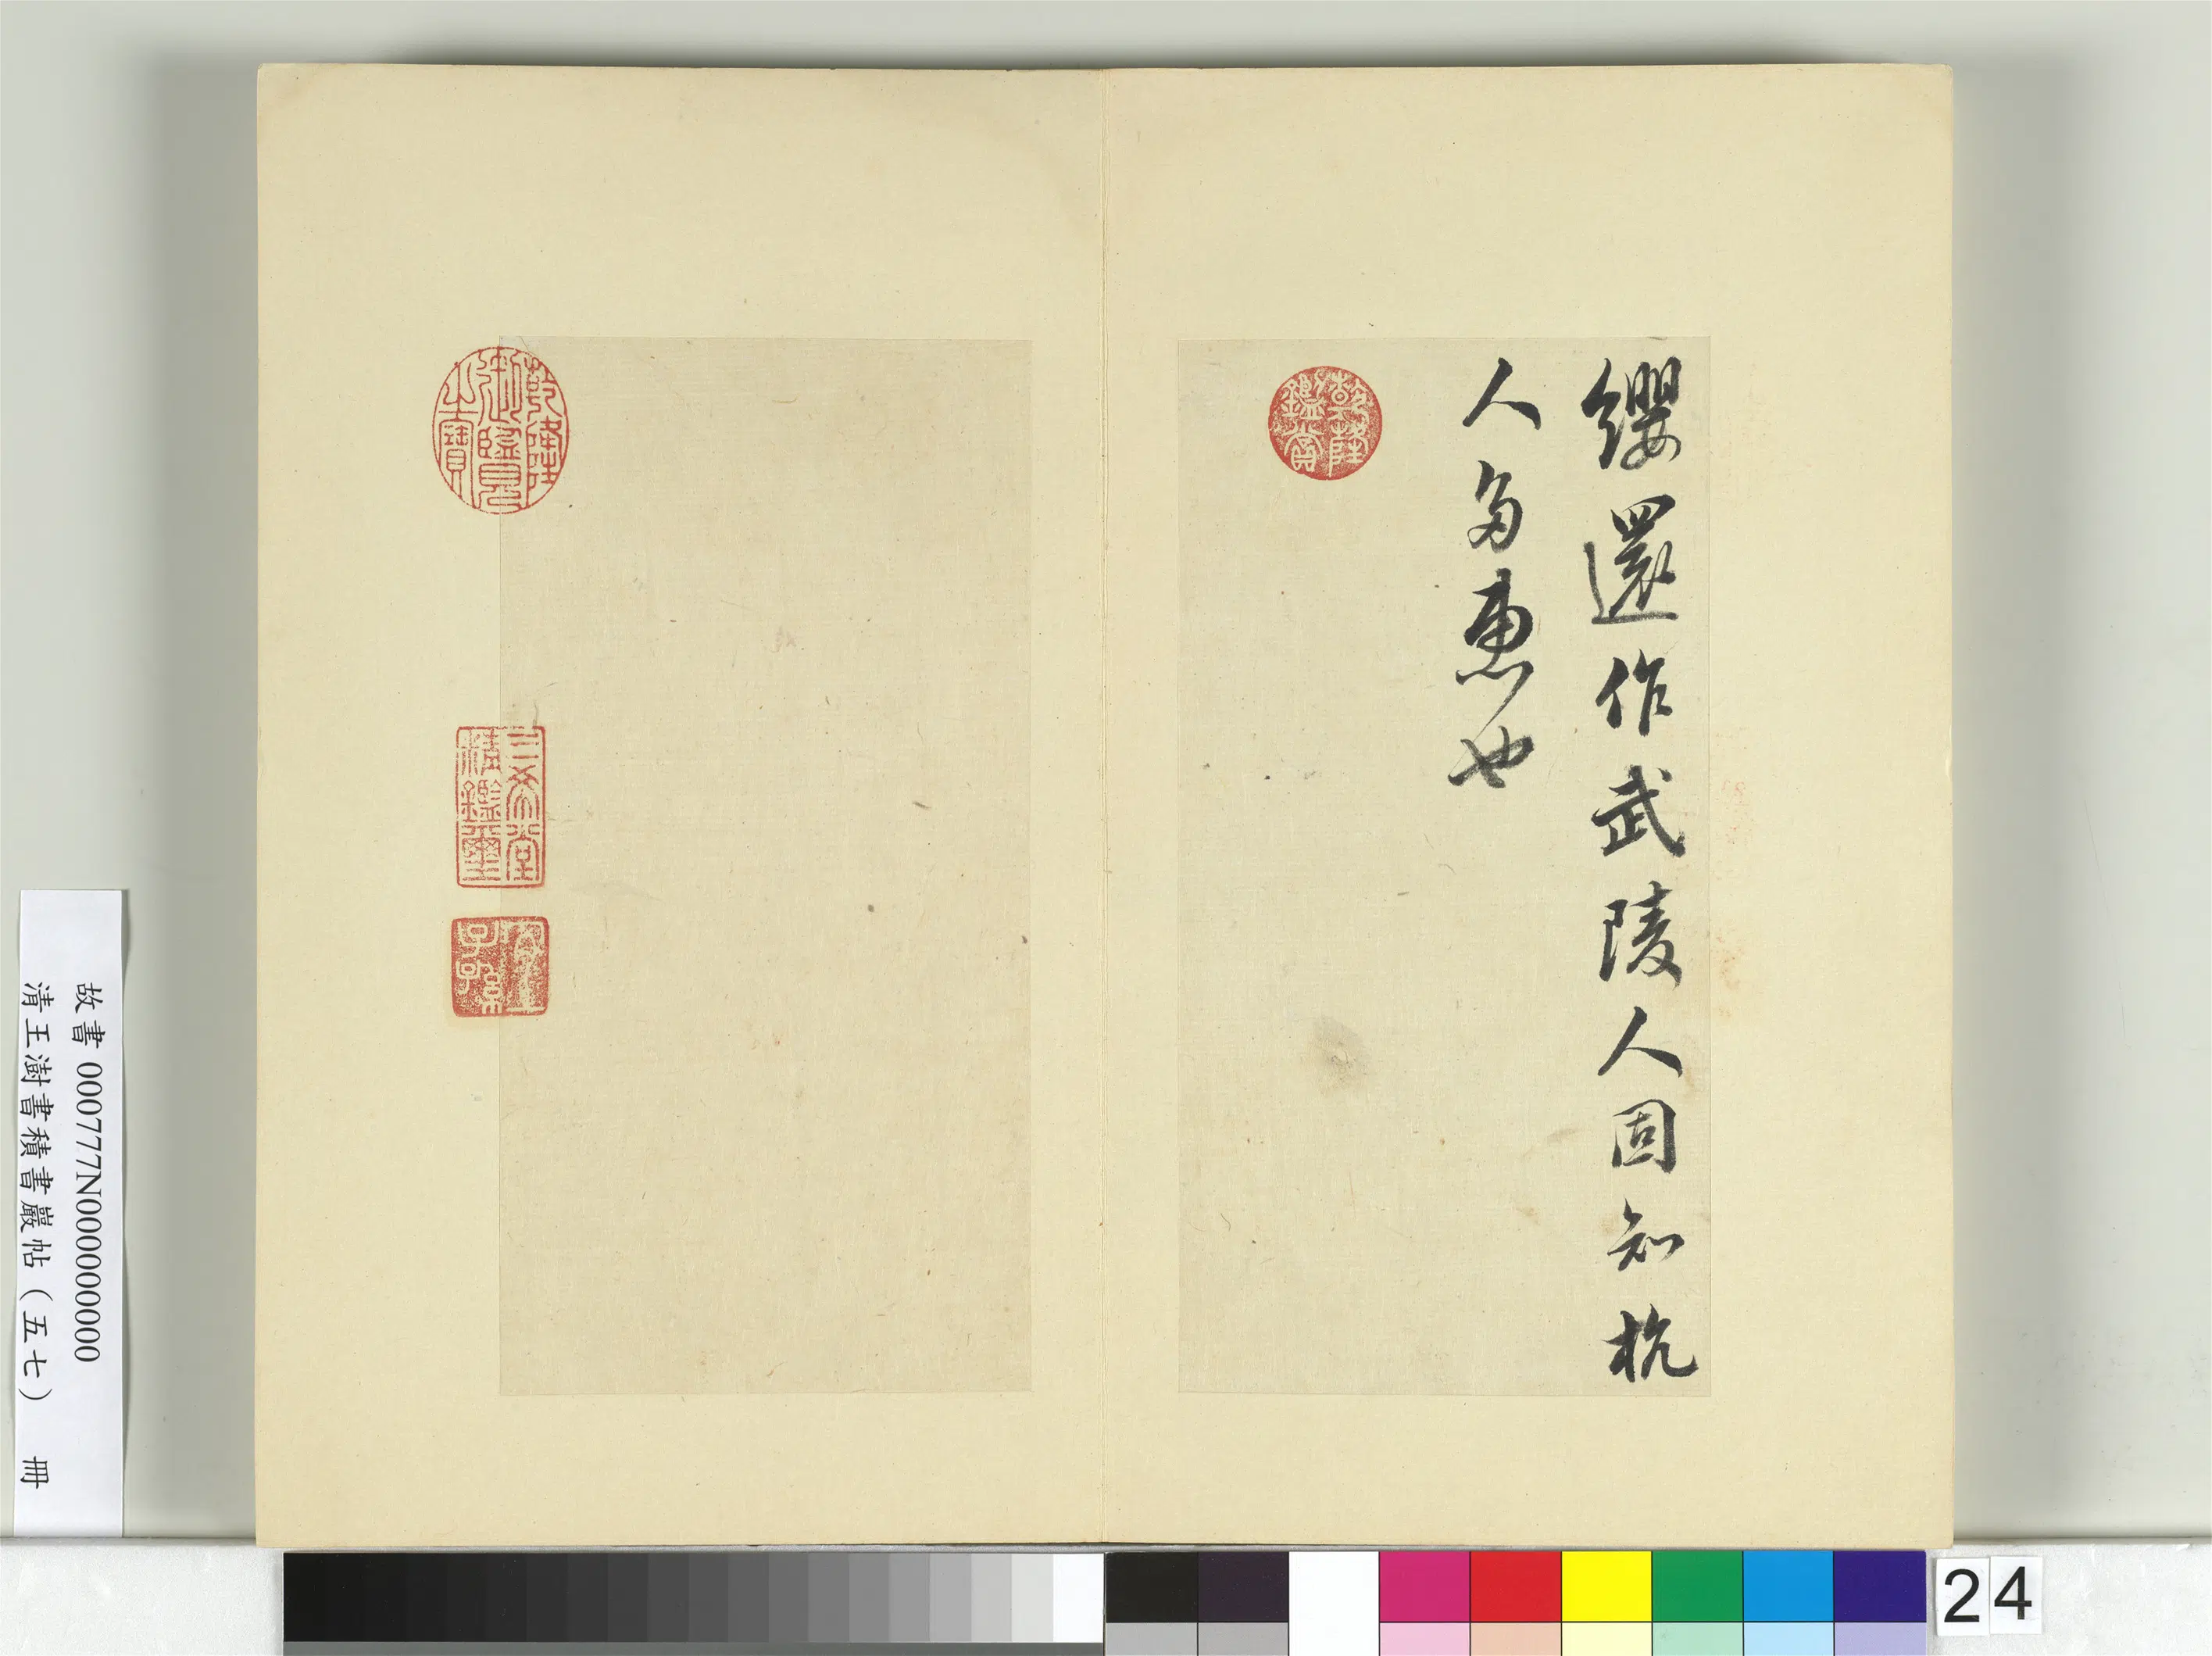 纓還作武陵人固知杭
人多惠也
乾隆鑑賞
乾隆御覽之寶
三希堂精鑑璽
宜子孫
故書 000777N000000000
清王澍書積書巖帖（五七） 冊
24